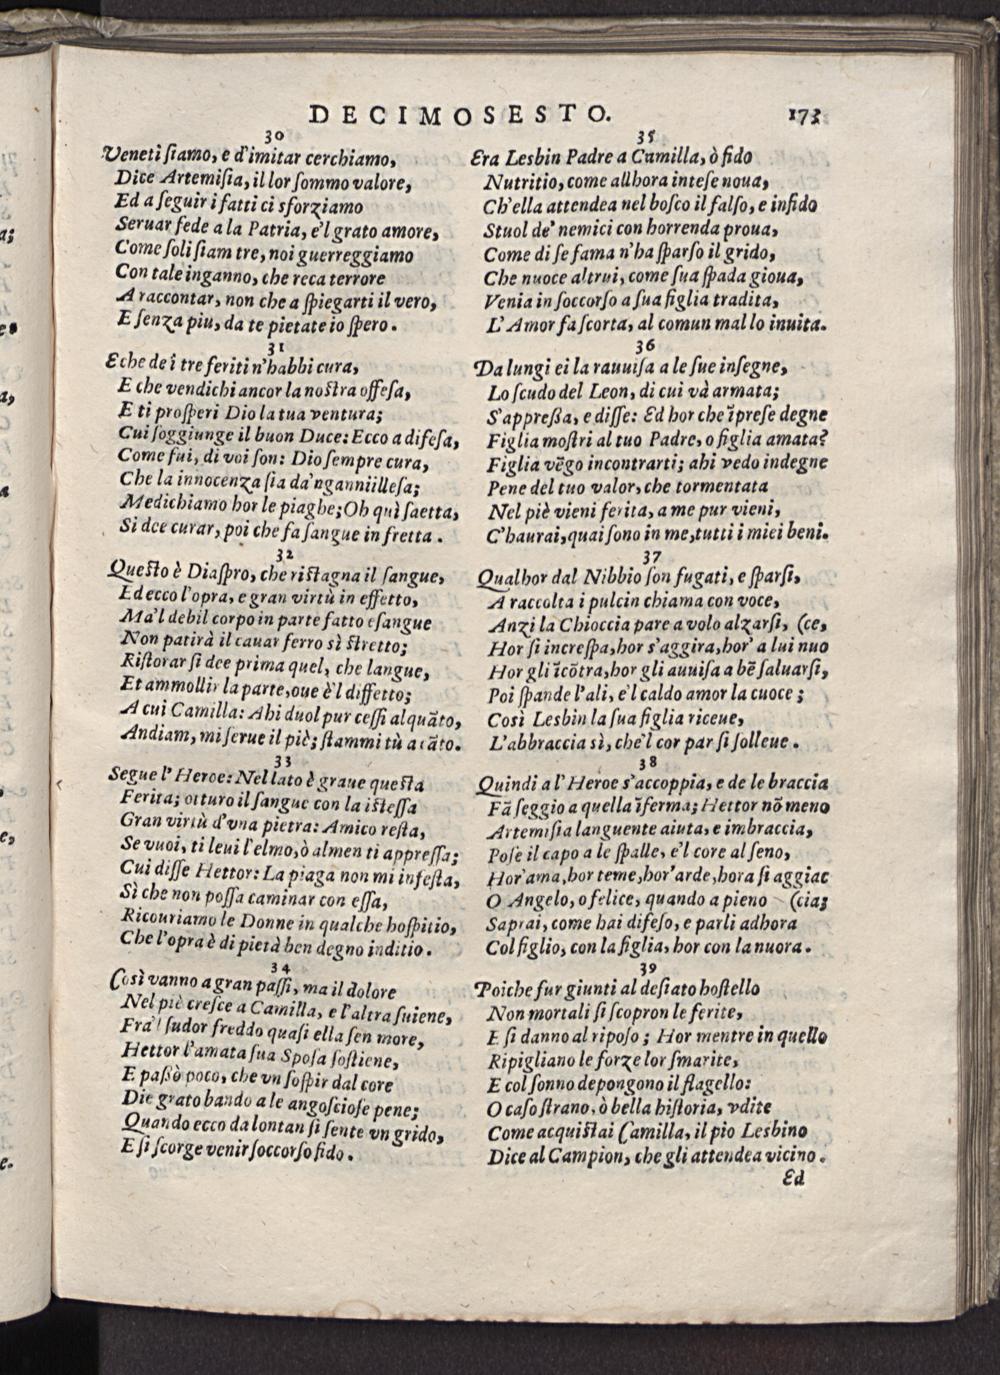 DECIMOSESTO. 173
30
Veneti ſiamo, e d'imitar cerchiamo,
Dice Artemiſia, il lor ſommo valore,
Ed a ſeguir i fatti ci sforziamo
Seruar fede a la Patria, e'l grato amore,
Come ſoli ſiam tre, noi guerreggiamo
Con tale inganno, che reca terrore
A raccontar, non che a ſpiegarti il vero,
E ſenza piu, da te pietate io ſpero.
31
E che de i tre feriti n'habbi cura,
E che vendichi ancor la noſtra offeſa,
E ti proſperi Dio la tua ventura;
Cui ſoggiunge il buon Duce: Ecco a difeſa,
Come fui, di voi ſon: Dio ſempre cura,
Che la innocenza ſia da'nganni illeſa;
Medichiamo hor le piaghe; Oh quì ſaetta,
Si dee curar, poi che fa ſangue in fretta.
32
Queſto è Diaſpro, che riſtagna il ſangue,
Ed ecco l'opra, e gran virtù in effetto,
Ma'l debil corpo in parte fatto eſangue
Non patirà il cauar ferro sì ſtretto;
Riſtorar ſi dee prima quel, che langue,
Et ammollir la parte, oue è'l diffetto;
A cui Camilla: Ahi duol pur ceſſi alquāto,
Andiam, mi ſerue il piè; ſtammi tù a cāto.
33
Segue l'Heroe: Nel lato è graue queſta
Ferita; otturo il ſangue con la iſteſſa
Gran virtù d'vna pietra: Amico reſta,
Se vuoi, ti leui l'elmo, ò almen ti appreſſa;
Cui diſſe Hettor: La piaga non mi infeſta,
Sì che non poſſa caminar con eſſa,
Ricouriamo le Donne in qualche hoſpitio,
Che l'opra è di pietà ben degno inditio.
34
Così vanno a gran paſſi, ma il dolore
Nel piè creſce a Camilla, e l'altra ſuiene,
Fra'l ſudor freddo quaſi ella ſen more,
Hettor l'amata ſua Spoſa ſoſtiene,
E paßò poco, che vn ſoſpir dal core
Die grato bando a le angoſcioſe pene;
Quando ecco da lontan ſi ſente vn grido,
E ſi ſcorge venir ſoccorſo fido.
35
Era Lesbin Padre a Camilla, ò fido
Nutritio, come allhora inteſe noua,
Ch'ella attendea nel boſco il falſo, e infido
Stuol de' nemici con horrenda proua,
Come di ſe fama n'ha ſparſo il grido,
Che nuoce altrui, come ſua ſpada gioua,
Venia in ſoccorſo a ſua figlia tradita,
L'Amor fa ſcorta, al comun mal lo inuita.
36
Da lungi ei la rauuiſa a le ſue inſegne,
Lo ſcudo del Leon, di cui và armata;
S'appreßa, e diſſe: Ed hor che īpreſe degne
Figlia moſtri al tuo Padre, o figlia amata?
Figlia vēgo incontrarti; ahi vedo indegne
Pene del tuo valor, che tormentata
Nel piè vieni ferita, a me pur vieni,
C'haurai, quai ſono in me, tutti i miei beni.
37
Qualhor dal Nibbio ſon fugati, e ſparſi,
A raccolta i pulcin chiama con voce,
Anzi la Chioccia pare a volo alzarſi, (ce,
Hor ſi increſpa, hor s'aggira, hor' a lui nuo
Hor gli īcōtra, hor gli auuiſa a bē ſaluarſi,
Poi ſpande l'ali, e'l caldo amor la cuoce;
Così Lesbin la ſua figlia riceue,
L'abbraccia sì, che'l cor par ſi ſolleue.
38
Quindi a l'Heroe s'accoppia, e de le braccia
Fā ſeggio a quella īferma; Hettor nō meno
Artemiſia languente aiuta, e imbraccia,
Poſe il capo a le ſpalle, e'l core al ſeno,
Hor'ama, hor teme, hor'arde, hora ſi aggiac
O Angelo, o felice, quando a pieno (cia;
Saprai, come hai difeſo, e parli adhora
Col figlio, con la figlia, hor con la nuora.
39
Poiche fur giunti al deſiato hoſtello
Non mortali ſi ſcopron le ferite,
E ſi danno al ripoſo; Hor mentre in quello
Ripigliano le forze lor ſmarite,
E col ſonno depongono il flagello:
O caſo ſtrano, ò bella hiſtoria, vdite
Come acquiſtai Camilla, il pio Lesbino
Dice al Campion, che gli attendea vicino.
Ed